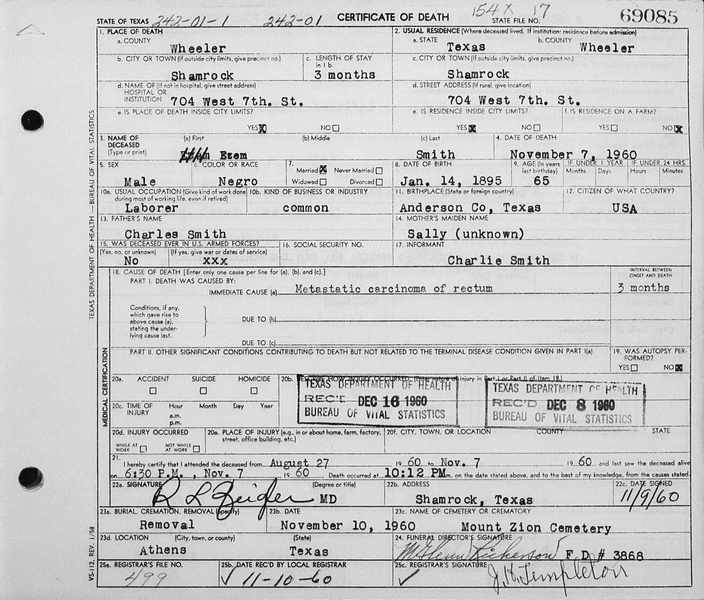 STATE OF TEXAS 242-01-1 242-01 CERTIFICATE OF DEATH 154X 17 STATE FILE NO. 69085
1. PLACE OF DEATH 2. USUAL RESIDENCE (Where deceased lived. If institution: residence before admission)
a. COUNTY a. STATE b. COUNTY
Wheeler Texas Wheeler
b. CITY OR TOWN (If outside city limits, give precinct no.) c. LENGTH OF STAY in 1 b. c. CITY OR TOWN (If outside city limits, give precinct no.)
Shamrock 3 months Shamrock
d. NAME OF (If not in hospital, give street address) HOSPITAL OR INSTITUTION d. STREET ADDRESS (If rural, give location)
704 West 7th. St. 704 West 7th. St.
e. IS PLACE OF DEATH INSIDE CITY LIMITS? e. IS RESIDENCE INSIDE CITY LIMITS? f. IS RESIDENCE ON A FARM?
YES X NO YES X NO YES NO X
3. NAME OF DECEASED (Type or print) (a) First (b) Middle (c) Last 4. DATE OF DEATH
Ezem Smith November 7, 1960
5. SEX COLOR OR RACE 7. Married X Never Married Widowed Divorced 8. DATE OF BIRTH 9. AGE (In years last birthday) IF UNDER 1 YEAR Months Days IF UNDER 24 HRS Hours Minutes
Male Negro Jan. 14, 1895 65
10a. USUAL OCCUPATION (Give kind of work done during most of working life, even if retired) 10b. KIND OF BUSINESS OR INDUSTRY 11. BIRTHPLACE (State or foreign country) 12. CITIZEN OF WHAT COUNTRY?
Laborer common Anderson Co, Texas USA
13. FATHER'S NAME 14. MOTHER'S MAIDEN NAME
Charles Smith Sally (unknown)
15. WAS DECEASED EVER IN U.S. ARMED FORCES? 16. SOCIAL SECURITY NO. 17. INFORMANT
(Yes, no, or unknown) (If yes, give war or dates of service)
No xxx Charlie Smith
18. CAUSE OF DEATH [Enter only one cause per line for (a), (b), and (c).] INTERVAL BETWEEN ONSET AND DEATH
PART I. DEATH WAS CAUSED BY:
IMMEDIATE CAUSE (a) Metastatic carcinoma of rectum 3 months
Conditions, if any, which gave rise to above cause (a), stating the underlying cause last.
DUE TO (b)
DUE TO (c)
PART II. OTHER SIGNIFICANT CONDITIONS CONTRIBUTING TO DEATH BUT NOT RELATED TO THE TERMINAL DISEASE CONDITION GIVEN IN PART I(a) 19. WAS AUTOPSY PERFORMED?
YES NO X
20a. ACCIDENT SUICIDE HOMICIDE 20b.
TEXAS DEPARTMENT OF HEALTH
REC'D DEC 16 1960
BUREAU OF VITAL STATISTICS
TEXAS DEPARTMENT OF HEALTH
REC'D DEC 8 1960
BUREAU OF VITAL STATISTICS
20c. TIME OF INJURY Hour Month Day Year
a.m.
p.m.
20d. INJURY OCCURRED 20e. PLACE OF INJURY (e.g., in or about home, farm, factory, street, office building, etc.) 20f. CITY, TOWN, OR LOCATION COUNTY STATE
WHILE AT WORK NOT WHILE AT WORK
21. I hereby certify that I attended the deceased from August 27 1960 to Nov. 7 1960. and last saw the deceased alive
on 6:30 P.M., Nov. 7 1960 Death occurred at 10:12 PM on the date stated above, and to the best of my knowledge, from the causes stated.
22a. SIGNATURE (Degree or title) 22b. ADDRESS 22c. DATE SIGNED
R L Zeigler MD Shamrock, Texas 11/9/60
23a. BURIAL, CREMATION, REMOVAL (Specify) 23b. DATE 23c. NAME OF CEMETERY OR CREMATORY
Removal November 10, 1960 Mount Zion Cemetery
23d. LOCATION (City, town, or county) (State) 24. FUNERAL DIRECTOR'S SIGNATURE
Athens Texas Glenn Rickerson F.D # 3868
25a. REGISTRAR'S FILE NO. 25b. DATE REC'D BY LOCAL REGISTRAR 25c. REGISTRAR'S SIGNATURE
499 11-10-60 J.H. Templeton
TEXAS DEPARTMENT OF HEALTH — BUREAU OF VITAL STATISTICS
MEDICAL CERTIFICATION
VS-112, REV. 1/58